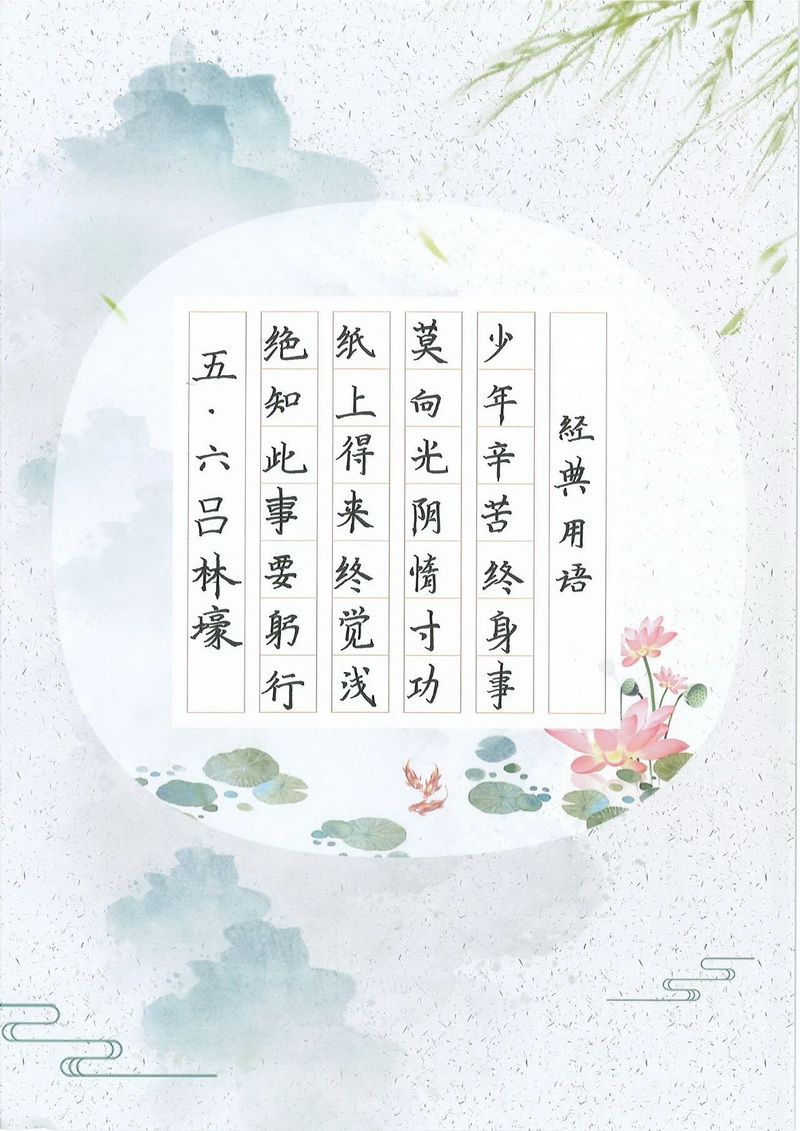 經典用语
少年辛苦终身事
莫向光阴惰寸功
纸上得来终觉浅
绝知此事要躬行
五·六吕林壕